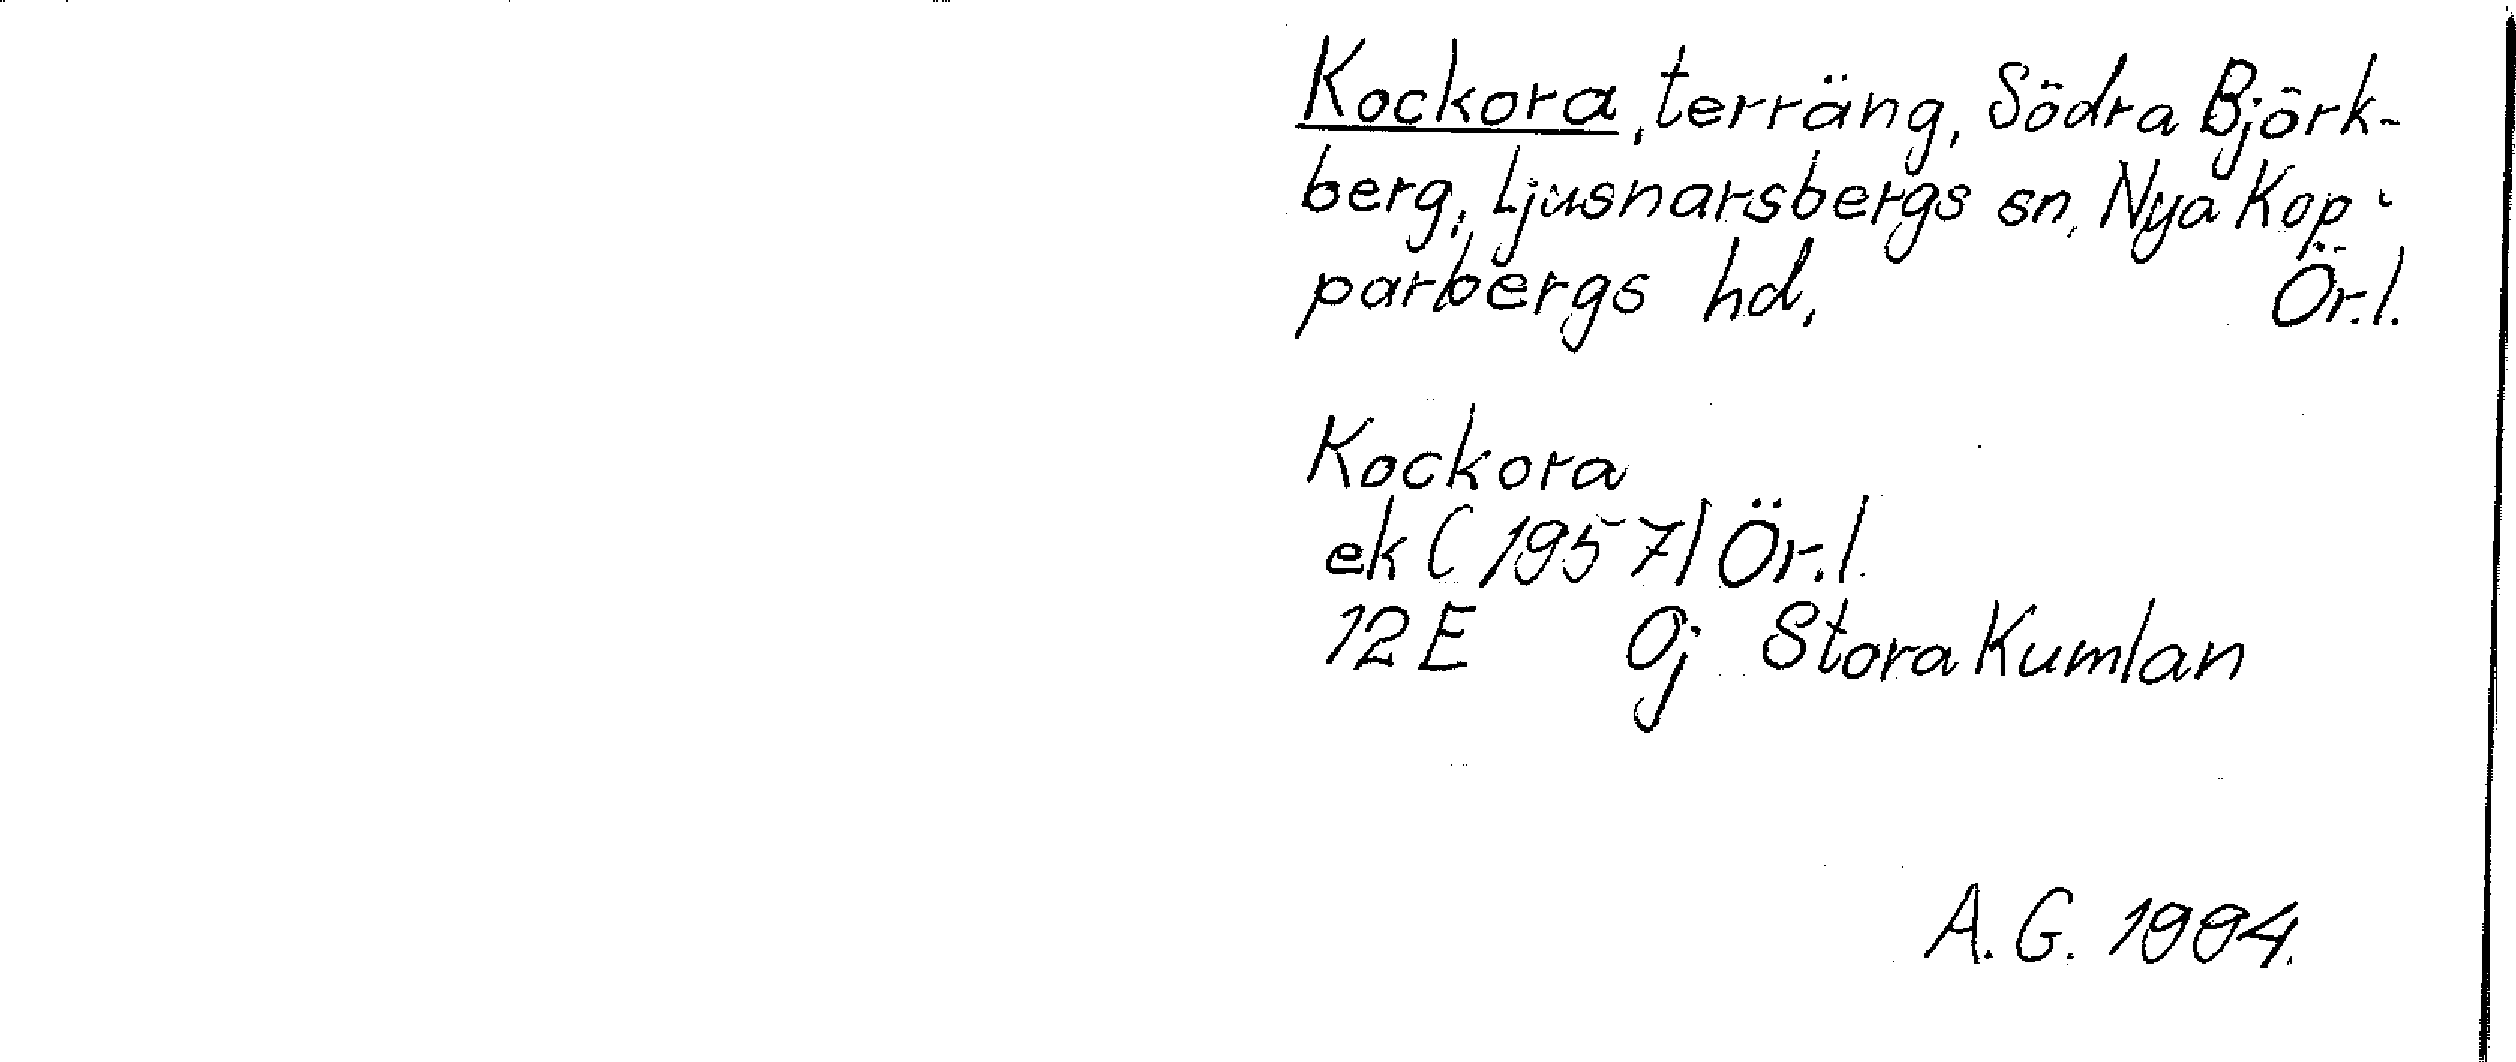 Kockora, terräng, Södra Björk-
berg, Ljusnarsbergs sn, Nya Kop-
parbergs hd, Ör.l.
Kockora
ek (1957) Ör.l.
12E 0j Stora Kumlan
A.G. 1994.